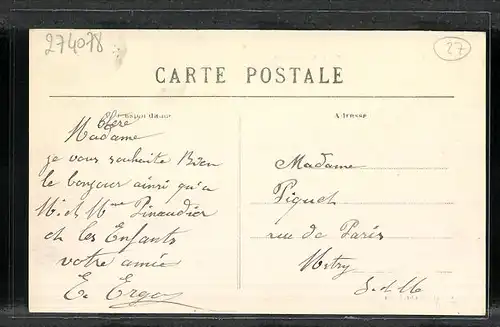 274018
27
CARTE POSTALE
Correspondance
Adresse
Chère
Madame
je vous souhaite Bien
le bonjour ainsi qu'a
M. et Mme Pinaudier
et les Enfants
votre amie
E. Ergo
Madame
Piquet
rue de Paris
Mitry
S-et-M